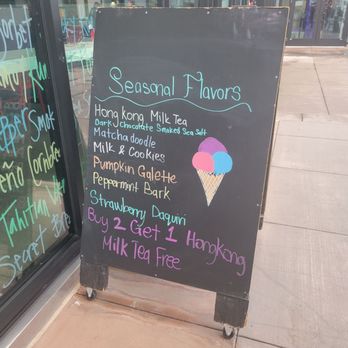 Seasonal Flavors
Hong Kong Milk Tea
Dark Chocolate Smoked Sea Salt
Matchadoodle
Milk & Cookies
Pumpkin Galette
Peppermint Bark
Strawberry Daquiri
Buy 2 Get 1 Hongkong
Milk Tea Free
Sorbet
Tahitian
Secret